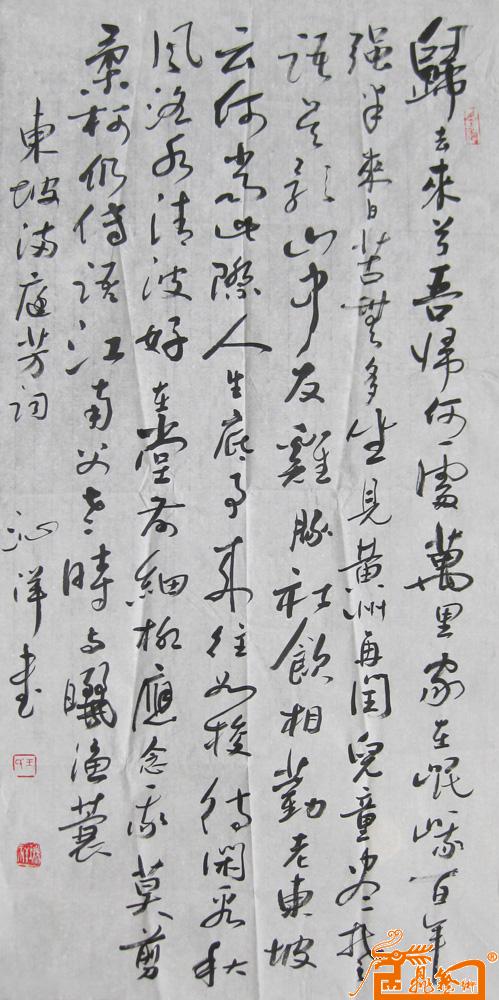 歸去來兮吾帰何處萬里家在岷峨百年
强半來日苦無多坐見黄州再閏兒童盡楚
語吴歌山中友雞豚社飲相勸老東坡
云何當此際人生底事來往如梭待閑看秋
風洛水清波好在堂前細柳應念我莫剪
柔柯仍傳語江南父老時与曬漁蓑
東坡满庭芳詞 沁洋書